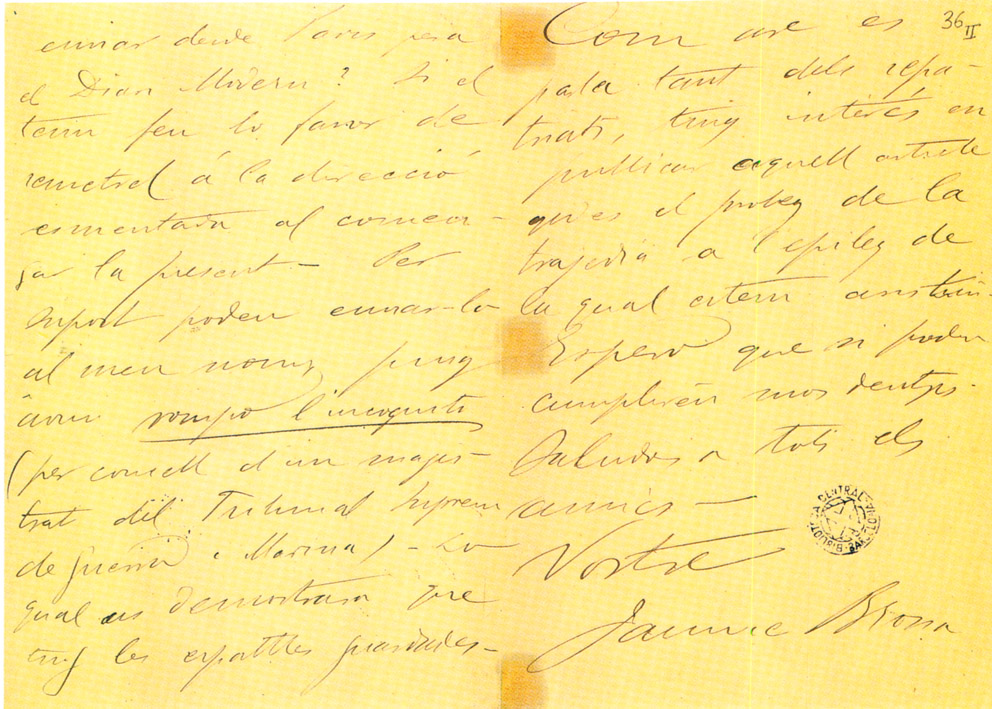 enviar desde Paris pera
el Diari Modern? Si el
teniu feu lo favor de
remetrel á la direcció
esmentada al comen-
sar la present — Per
suport poden enviar-lo
al meu nom, puig
avui rompo l'incognito
(per consell d'un magis-
trat del Tribunal Suprem
de guerra i Marina) — Lo
qual us demostrara que
tinj les espatlles guardades —
36 II
Com are es
parla tant dels repa-
triats, ting interés en
publicar aquell article
qu'es el proleg de la
trajedia a l'epileg de
la qual estem assistin.
Espero que si poden
cumplireu mos dentjs.
Saludos a tots els
amics —
Vostre
Jaume Brossa
BIBLIOTECA CENTRAL BARCELONA